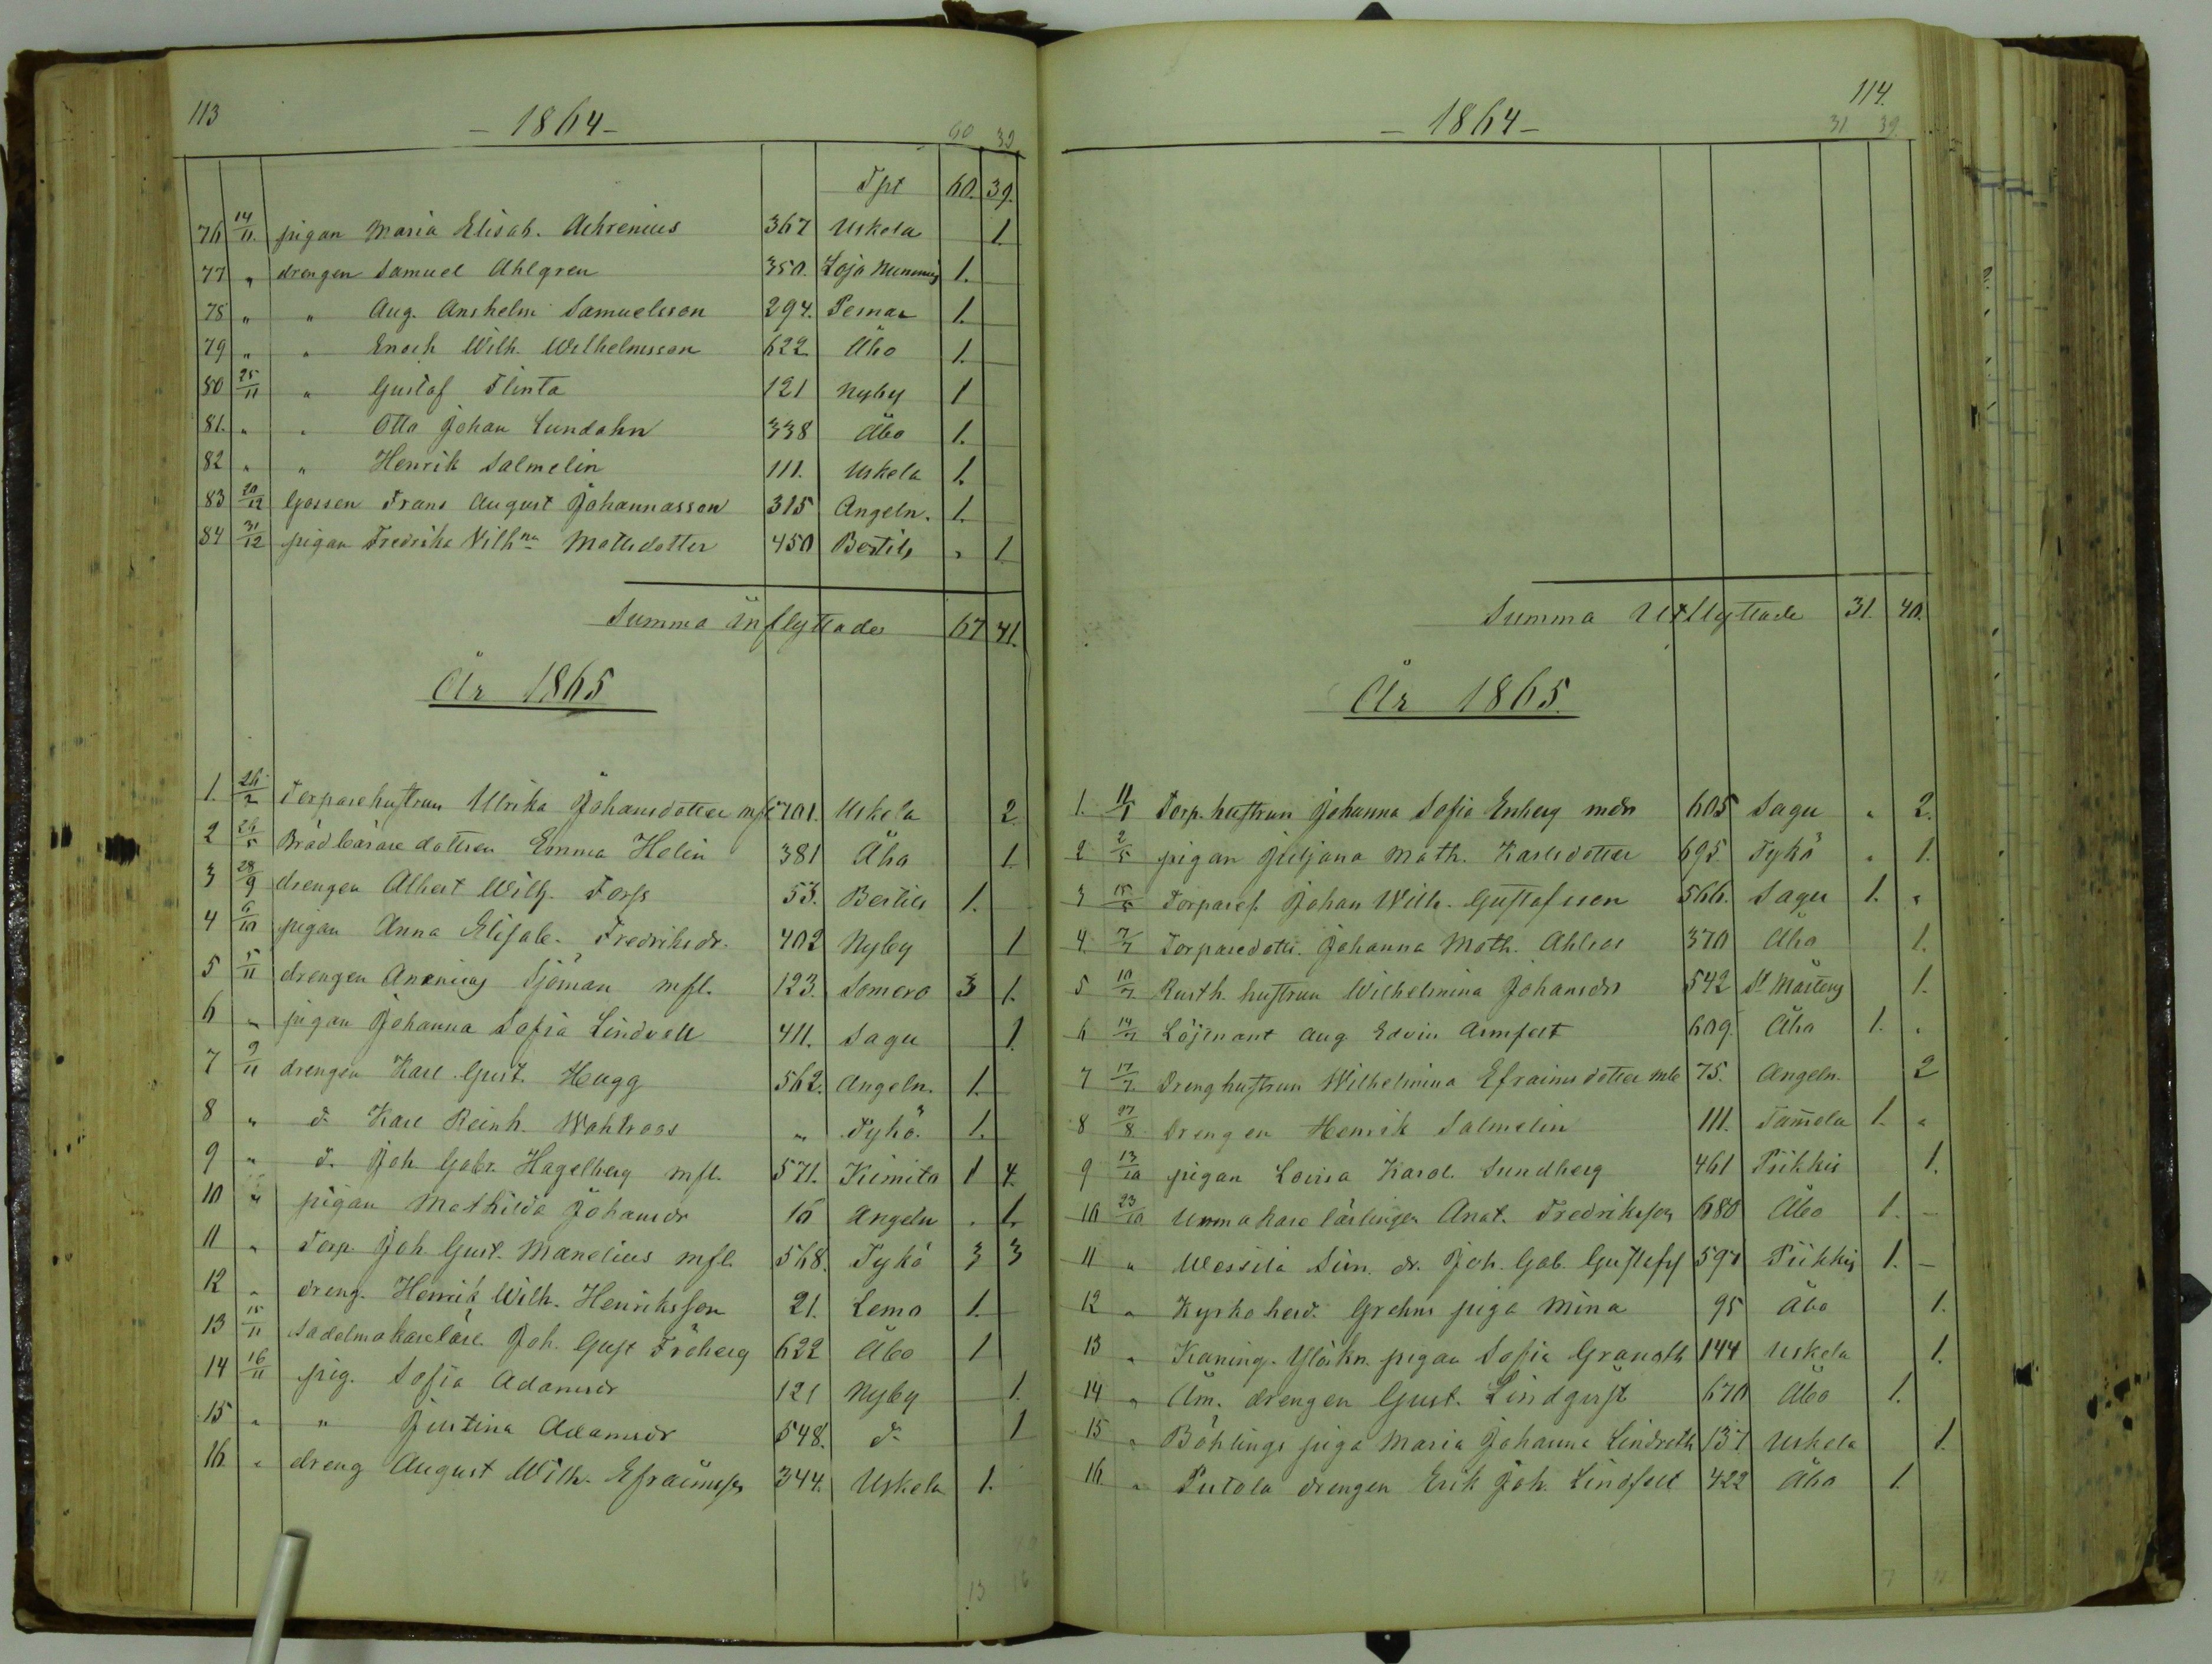 113
- 1864 -
60 39
Tpt 60. 39.
76 14/11. pigan Maria Elisab. Achrenius 367 Uskela 1
77 " drengen Samuel Ahlgren 350. Lojo Nummis 1.
78 " " Aug. Anshelm Samuelsson 294. Pemar 1.
79 " " Enoch Wilh. Wilhelmsson 622 Åbo 1.
80 25/11 " Gustaf Flinta 121 Nyby 1
81. " " Otto Johan Lundahn 338 Åbo 1.
82 " " Henrik Salmelin 111. Uskela 1.
83 20/12 Gossen Frans August Johannasson 315 Angeln. 1.
84 31/12 pigan Fredrika Vilhna Mattsdotter 450 Bertils " 1
Summa Inflyttade 67 41.
År 1865
1. 26/2 Torparehustrun Ulrika Johansdotter mfl 701. Uskela 2
2 24/5 Brädbärare dottren Emma Helin 381 Åbo 1
3 28/9 drengen Albert Wilh. Forss 53. Bertils 1.
4 6/10 pigan Anna Elisab. Fredriksdr. 402 Nyby 1
5 5/11 drengen Ananias Sjöman mfl. 123. Somero 3 1.
6 " pigan Johanna Sofia Lindvall 411. Sagu 1.
7 9/11 drengen Karl Gust. Hugg 562. Angeln. 1.
8 " d. Karl Reinh. Wahlroos " Tykö. 1.
9 " d. Joh. Gabr. Hagelberg mfl. 571. Kimito 1 4.
10 " pigan Mathilda Johansdr 16 Angeln . 1.
11 " Torp. Joh. Gust. Manelius mfl. 568. Tykö 3 3
12 " dreng. Henrik Wilh. Henriksson 21. Lemo 1.
13 15/11 Sadelmakarelärl. Joh. Gust Fröberg 622 Åbo 1
14 16/11 pig. Sofia Adamsdr 121 Nyby 1.
15 " " Justina Adamsdr 548. d. 1
16 " dreng August Wilh. Efraimsson 344. Uskela 1.
13 16
114.
- 1864 -
31 39.
Summa Utflyttade 31. 40.
År 1865.
1. 11/1 Torp. hustrun Johanna Sofia Enberg mdr 605 Sagu " 2.
2 2/5 pigan Juljana Math. Karlsdotter 695 Tykö " 1.
3 15/5 Torparef. Johan Wilh. Gustafsson 566. Sagu 1. "
4. 7/7 Torparedottr. Johanna Math. Ahlroos 370 Åbo 1.
5 10/7 Rusth. hustrun Wilhelmina Johansdr 542 St Mårtens 1.
6 14/7 Löjtnant Aug Edvin Armfelt 609. Åbo 1. "
7 17/7. Drenghustrun Wilhelmina Efraimsdotter 75. Angeln. 2
8 27/8 Drengen Henrik Salmelin 111. Tam̄ela 1. "
9 13/10 pigan Lovisa Karol. Sundberg 461 Piikkis 1.
10 23/10 Urmakare lärlingen Anat. Fredriksson 680 Åbo 1. -
11 " Wessilä Sim. dr. Joh. Gab. Gustafss 597 Piikkis 1. -
12 " Kyrkoherd. Grehns piga Mina 95 Åbo 1.
13 " pigan Sofia Granoth 144 Uskela 1.
14 " Åm. drengen Gust. Lindqvist 670 Åbo 1.
15 " Böhlings piga Maria Johanna Lindroth 137 Uskela 1.
16 " Putola drengen Erik Joh. Lindfelt 422 Åbo 1.